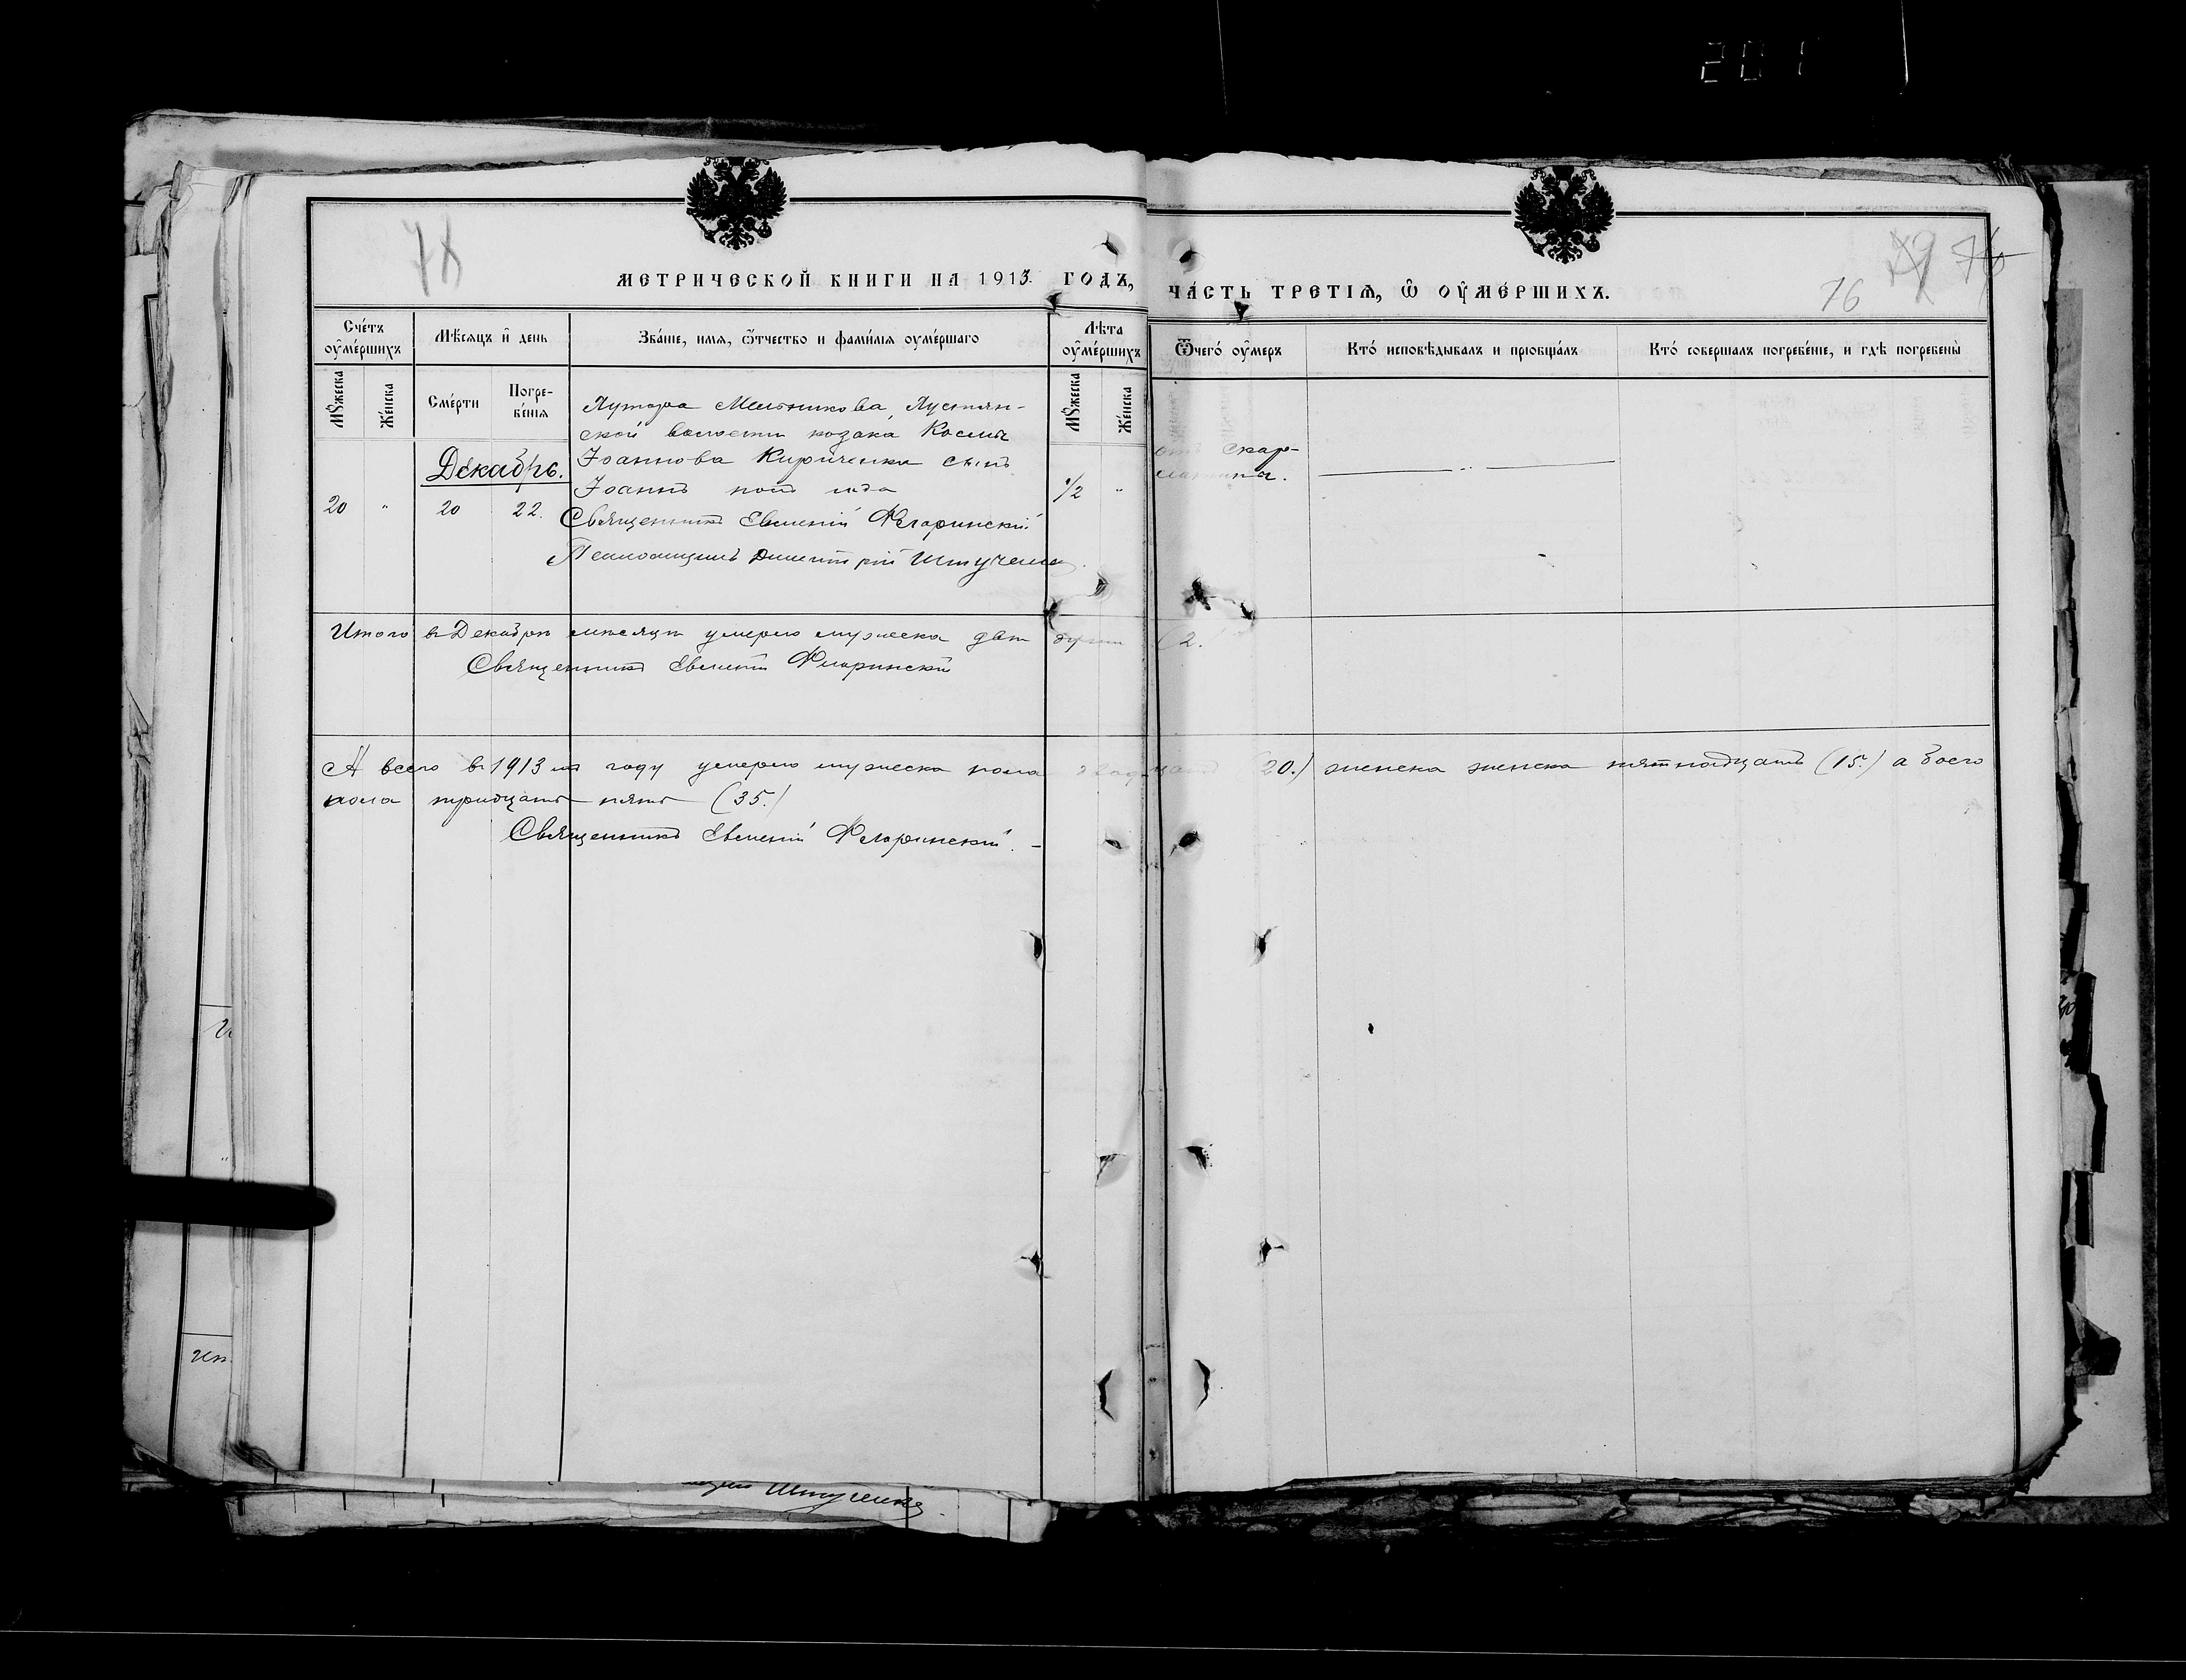 201
78
79 76
76
МЕТРИЧЕСКОЙ КНИГИ НА 1913 ГОДЪ,
ЧА́СТЬ ТРЕТІЯ, Ѿ ОУМЕ́РШИХЪ.
Сче́тъ оуме́ршихъ
Мѣсяцъ и день
Зва́ніе, имя, ѿтчество и фами́лія оуме́ршаго
Лѣта оуме́ршихъ
Ѿчего́ оумеръ
Кто́ исповѣдывалъ и пріобща́лъ
Кто́ совершалъ погребе́ніе, и гдѣ погребены̀
Мꙋжеска
Же́нска
Сме́рти
Погре-
бе́нія
Мꙋжеска
Же́нска
Декабрь.
20 " 20 22.
Хутора Мельникова, Пустын-
ской волости козака Космы
Іоаннова Кириченка сынъ
Іоаннъ полъ года
1/2 "
отъ скар-
латина.
Священникъ Евменій Флоринскій
Псаломщикъ Димитрій Штученко
Итого въ Декабрѣ мѣсяцѣ умерло мужеска двѣ души (2.)
Священникъ Евменій Флоринскій
А всего въ 1913 мъ году умерло мужеска пола двадцать (20.) женска женска пятнадцать (15.) а обоего
пола тридцать пять (35.)
Священникъ Евменій Флоринскій.
Ит
Штученко